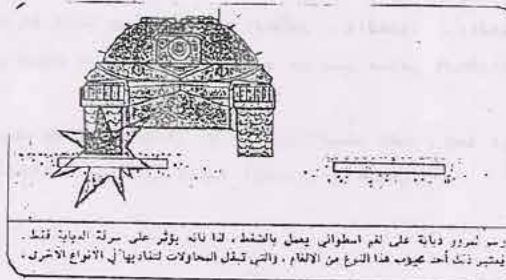 رسم لمرور دبابة على لغم اسطواني يعمل بالضغط ، لذا فانه يؤثر على سرفة الدبابة فقط .
ويعتبر ذلك أحد عيوب هذا النوع من الالغام ، والتي تبذل المحاولات لتفاديها في الانواع الاخرى .